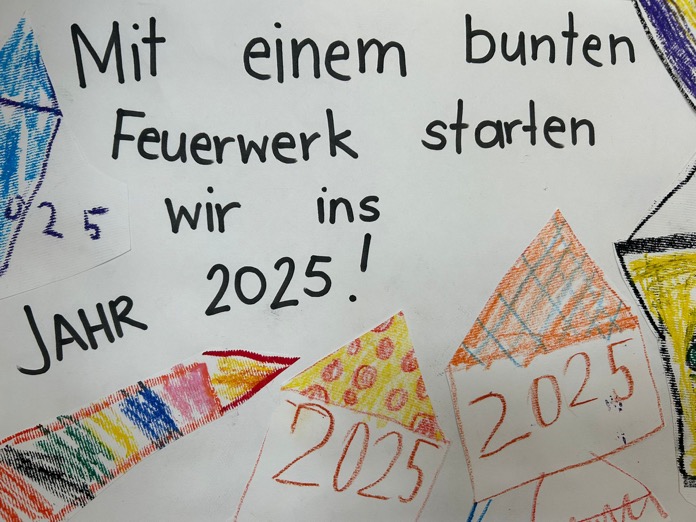 Mit einem bunten
Feuerwerk starten
wir ins
JAHR 2025!
25
2025
2025